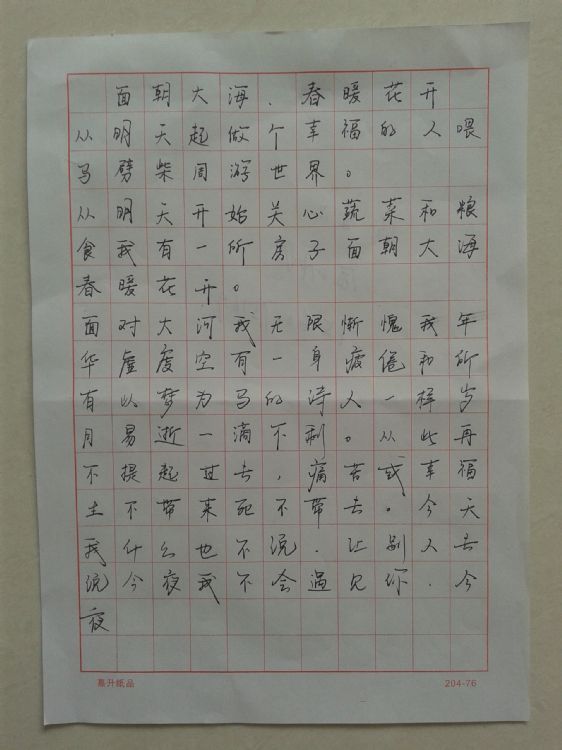 面朝大海，春暖花开
从明天起做个幸福的人喂
马劈柴周游世界。
从明天开始关心蔬菜和粮
食我有一所房子面朝大海
春暖花开。
面对大河我无限惭愧我年
华虚度空有一身疲倦和所
有以梦为马的诗人一样岁
月易逝一滴不剩。从此再
不提起过去，痛苦或幸福
生不带来死不带去。今天
我什么也不说．让别人去
说今夜我不会遇见你．今
夜
嘉升纸品 204-76